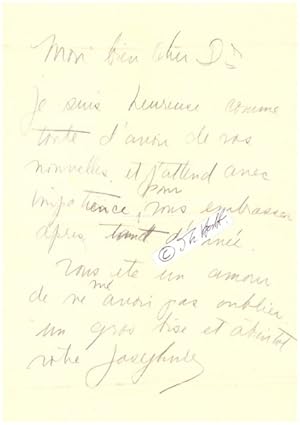 Mon bien cher Dr
Je suis heureuse comme
toute d'avoir de vos
nouvelles, et j'attend avec
impatience, pour vous embrasser
après d'année.
Vous ete un amour
de ne m'avoir pas oublier
un gros bise et abientot
votre Josephine